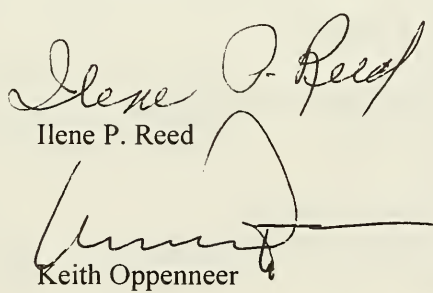 Ilene P. Reed
Ilene P. Reed
Keith Oppenneer